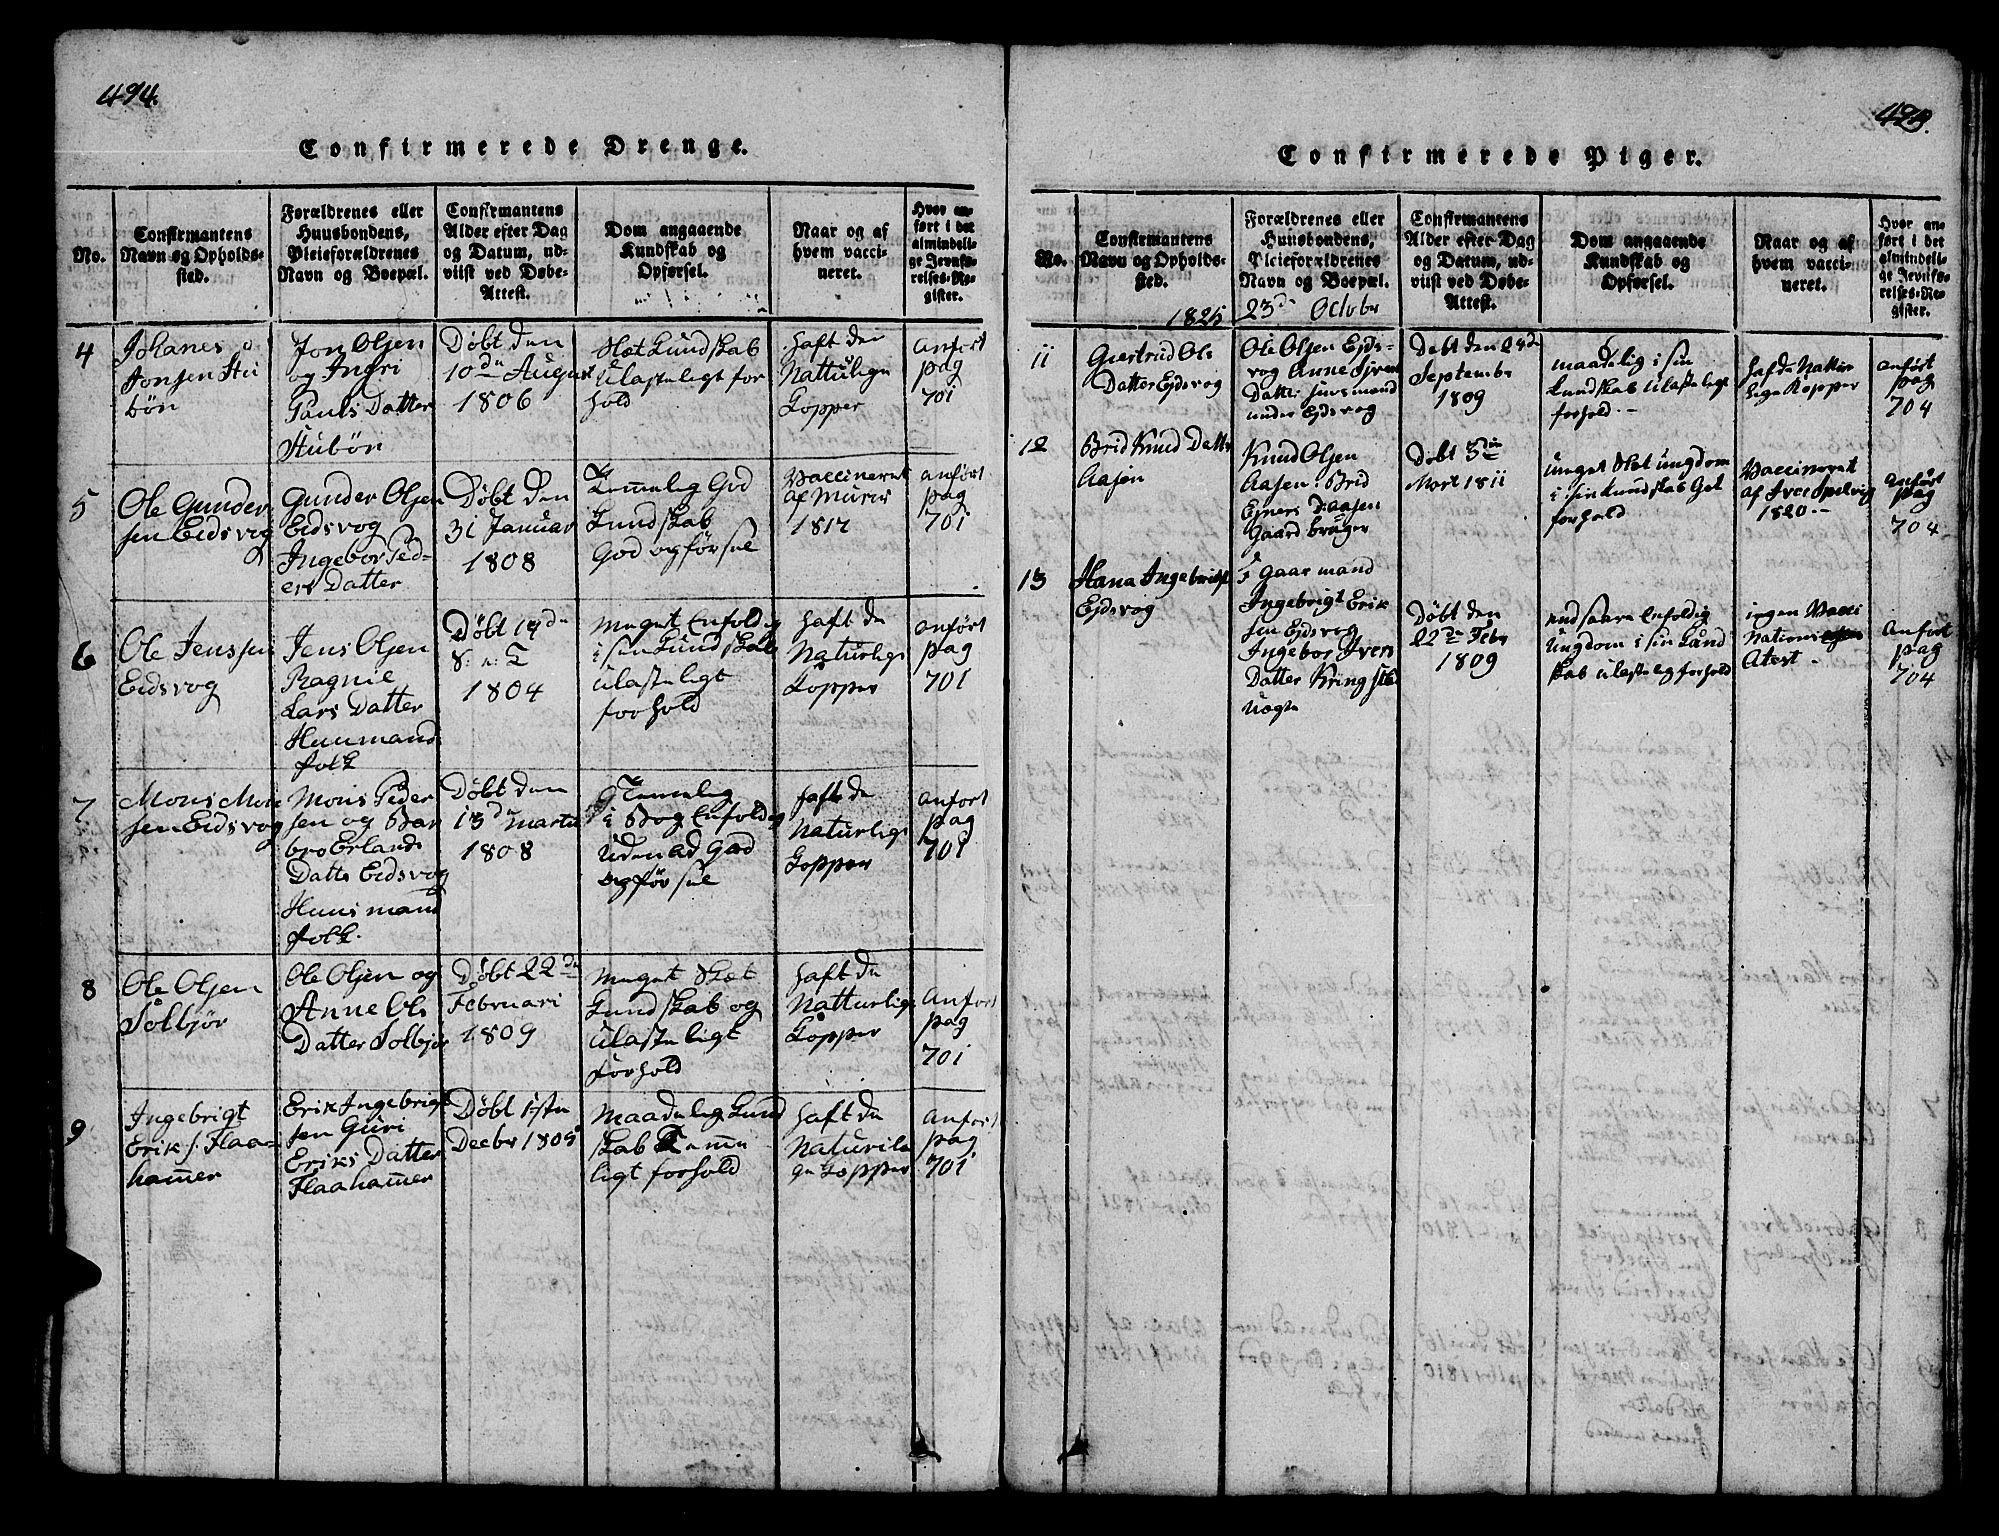 494.
Confirmerede Drenge.
No.
Confirmantens
Navn og Opholds-
sted.
Forældrenes eller
Huusbondens,
Pleieforældrenes
Navn og Boepæl.
Confirmantens
Alder efter Dag
og Datum, ud-
viist ved Døbe-
Attest.
Dom angaaende
Kundskab og
Opførsel.
Naar og af
hvem vacci-
neret.
Hvor an-
ført i det
almindeli-
ge Jevnfø-
relses-Re-
gister.
4
Johanes
Jonsen Stu
bön
Jon Olsen
og Ingri
Pauls Datter
Stubön
Døbt den
10de August
1806
Slæt Kundskab
Ulasteligt for
hold
haft de
Nattulige
Kopper
anfort
pag
701
5
Ole Gunder
sen Eidsvog
Gunder Olsen
Eidsvog
Ingebor Ped-
ers Datter
Døbt den
31 Januar
1808
Temelig God
Kundskab
God opførsel
Vaccineret
af
1812
anført
pag
701
6
Ole Jenssen
Eidsvog
Jens Olsen
Ragnie
Lars Datter
Huusmand
folk
Døbt 14de
1804
Meget Enfoldig
i sin Kundskab
Ulasteligt
forhold
haft de
Naturlige
Kopper
anført
pag
701
7
Mons Mon
sen Eidsvog
Mons Peder
sen og Bar
bro Erlands
Datter Eidsvog
Huusmand
folk.
Døbt den
13de Martii
1808
Temelig
i Bog Enfoldig
Uden ad God
opførsel
haft de
Naturlige
Kopper
anfort
pag
701
8
Ole Olsen
Solbjör
Ole Olsen og
Anne Ols
Datter Solbjör
Døbt 22de
Februari
1809
Meget Slæt
Kundskab og
Ulasteligt
forhold
haft de
Natturlige
Kopper
anfort
pag
701
9
Ingebrigt
Erik s. Flaa-
hamer
Erik Ingebrigt
sen Guri
Eriks Datter
Flaahamer
Døbt 1ste
Decbr 1809
Maadelig Kund
skab Teme
ligt forhold
haft de
Naturli
ge Kopper
anfort
pag
701
Confirmerede Piger.
No.
Confirmantens
Navn og Opholds-
sted.
Forældrenes eller
Huusbondens,
Pleieforældrenes
Navn og Boepæl.
Confirmantens
Alder efter Dag
og Datum, ud-
viist ved Døbe-
Attest.
Dom angaaende
Kundskab og
Opførsel.
Naar og af
hvem vacci-
neret.
Hvor an-
ført i det
almindeli-
ge Jevnfø-
relses-Re-
gister.
1825 23de Octobr
11
Giertrud Ols
Datter Ejdsvog
Ole Olsen Ejds-
vog Anne Ivers
Datter huusmand
under Ejdsvog
Døbt den 24de
Septembr
1809
maadelig i sin
Kundskab Ulasteligt
forhold.-
hafde Nattur
lige Kopper
anfört
pag
704
12
Brid Knud Datter
Aasen
Knud Olsen
Aasen Brid
Ejners D: Aasen
Gaard bruger
Døbt 3die
Mart 1811
meget Slet Ungdom
i sin Kundskab Got
forhold
Vaccineret
af Iver
1820.-
anført
pag
704
13
Hana Ingebrigt
Ejdsvog
Gaar mand
Ingebrigt Erik
sen Ejdsvog
Ingebor Ivers
Datter Kringste
Vogn
Døbt den
22de Febr
1809
End saare Enfoldig
Ungdom i sin Kund
skab Ulasteligt forhold
ingen Vacci
Nations
Atest.-
anfort
pag
704